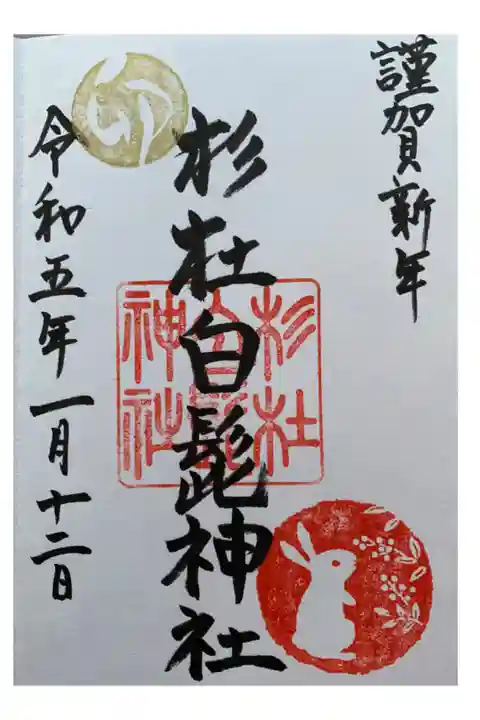 謹賀新年
杉杜白髭神社
杉杜
白髭
神社
卯
令和五年一月十二日